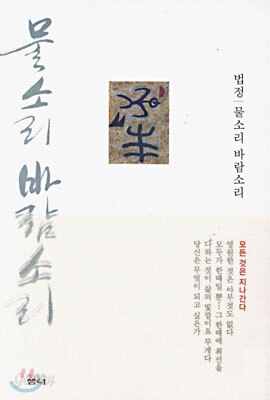 물소리 바람소리
법정 | 물소리 바람소리
모든 것은 지나간다
영원한 것은 아무것도 없다
모두가 한때일 뿐…그 한때에 최선을
다하는 것이 삶의 빛깔이요 무게다
당신은 무엇이 되고 싶은가
샘터